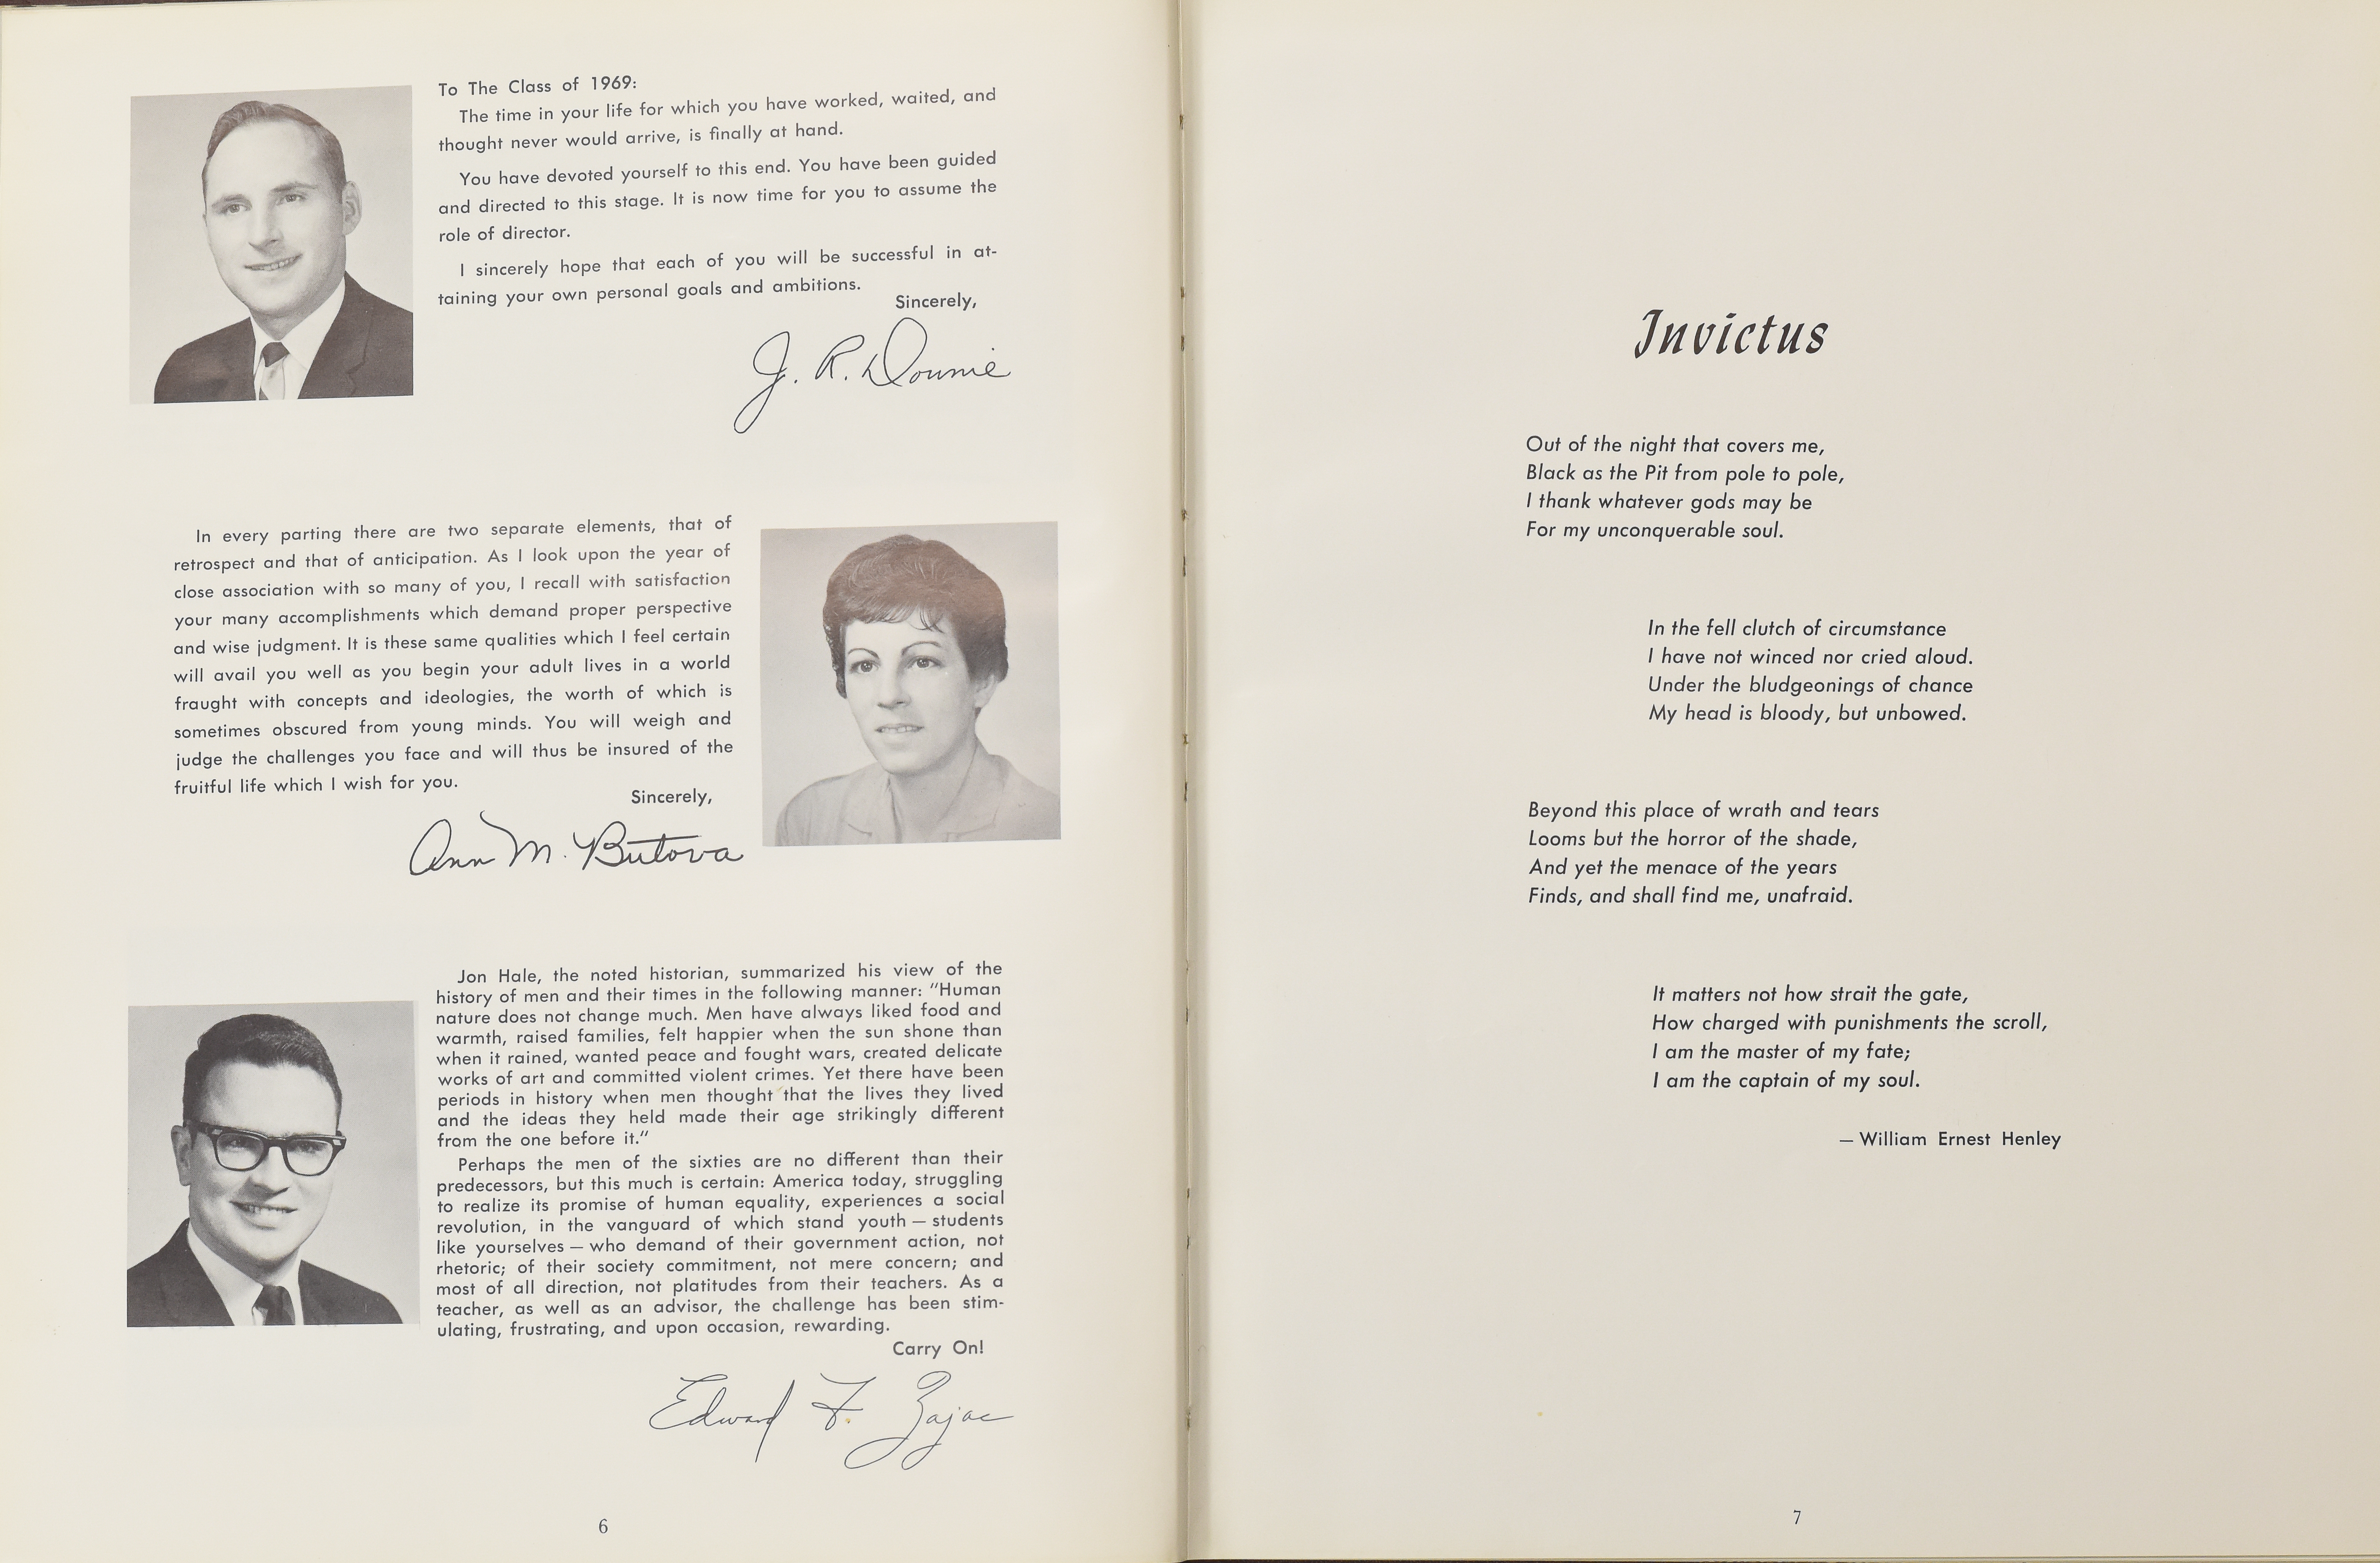 To The Class of 1969:
The time in your life for which you have worked, waited, and
thought never would arrive, is finally at hand.
You have devoted yourself to this end. You have been guided
and directed to this stage. It is now time for you to assume the
role of director.
I sincerely hope that each of you will be successful in at-
taining your own personal goals and ambitions.
Sincerely,
J. R. Downie
In every parting there are two separate elements, that of
retrospect and that of anticipation. As I look upon the year of
close association with so many of you, I recall with satisfaction
your many accomplishments which demand proper perspective
and wise judgment. It is these same qualities which I feel certain
will avail you well as you begin your adult lives in a world
fraught with concepts and ideologies, the worth of which is
sometimes obscured from young minds. You will weigh and
judge the challenges you face and will thus be insured of the
fruitful life which I wish for you.
Sincerely,
Ann M. Butova
Jon Hale, the noted historian, summarized his view of the
history of men and their times in the following manner: "Human
nature does not change much. Men have always liked food and
warmth, raised families, felt happier when the sun shone than
when it rained, wanted peace and fought wars, created delicate
works of art and committed violent crimes. Yet there have been
periods in history when men thought that the lives they lived
and the ideas they held made their age strikingly different
from the one before it."
Perhaps the men of the sixties are no different than their
predecessors, but this much is certain: America today, struggling
to realize its promise of human equality, experiences a social
revolution, in the vanguard of which stand youth — students
like yourselves — who demand of their government action, not
rhetoric; of their society commitment, not mere concern; and
most of all direction, not platitudes from their teachers. As a
teacher, as well as an advisor, the challenge has been stim-
ulating, frustrating, and upon occasion, rewarding.
Carry On!
Edward F. Zajac
6
Invictus
Out of the night that covers me,
Black as the Pit from pole to pole,
I thank whatever gods may be
For my unconquerable soul.
In the fell clutch of circumstance
I have not winced nor cried aloud.
Under the bludgeonings of chance
My head is bloody, but unbowed.
Beyond this place of wrath and tears
Looms but the horror of the shade,
And yet the menace of the years
Finds, and shall find me, unafraid.
It matters not how strait the gate,
How charged with punishments the scroll,
I am the master of my fate;
I am the captain of my soul.
— William Ernest Henley
7